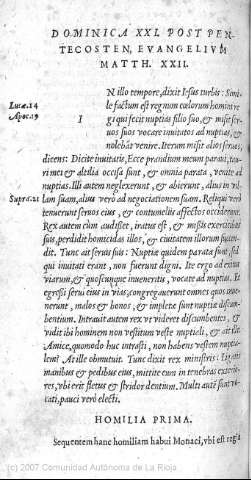 DOMINICA XXI. POST PEN-
TECOSTEN, EVANGELIVM
MATTH. XXII.
Lucæ.14
Apoc.19
I N illo tempore, dixit Iesus turbis: Simi-
le factum est regnum cælorum homini re-
gi qui fecit nuptias filio suo, & misit ser-
uos suos vocare inuitatos ad nuptias, &
nolebãt venire. Iterum misit alios seruos,
dicens: Dicite inuitatis, Ecce prandium meum paraui, tau-
ri mei & altilia occisa sunt, & omnia parata, venite ad
nuptias. Illi autem neglexerunt, & abierunt, alius in vil-
Supra.21
lam suam, alius verò ad negociationem suam. Reliqui verò
tenuerunt seruos eius, & contumelijs affectos occiderunt.
Rex autem cum audisset, iratus est, & missis exercitibus
suis, perdidit homicidas illos, & ciuitatem illorum succen-
dit. Tunc ait seruis suis: Nuptiæ quidem paratæ sunt, sed
qui inuitati erant, non fuerunt digni. Ite ergo ad exitus
viarum, & quoscunque inueneritis, vocate ad nuptias. Et
egressi serui eius in vias, congregauerunt omnes quos inue-
nerunt, malos & bonos, & impletæ sunt nuptiæ discum-
bentium. Intrauit autem rex vt videret discumbentes, &
vidit ibi hominem non vestitum veste nuptiali, & ait illi:
Amice, quomodo huc intrasti, non habens vestem nuptia-
lem? At ille obmutuit. Tunc dixit rex ministris: Ligatis
manibus & pedibus eius, mittite eum in tenebras exterio-
res, vbi erit fletus & stridor dentium. Multi autẽ sunt vo-
cati, pauci verò electi.
HOMILIA PRIMA.
Sequentem hanc homiliam habui Monaci, vbi est regia
(c) 2007 Comunidad Autónoma de La Rioja